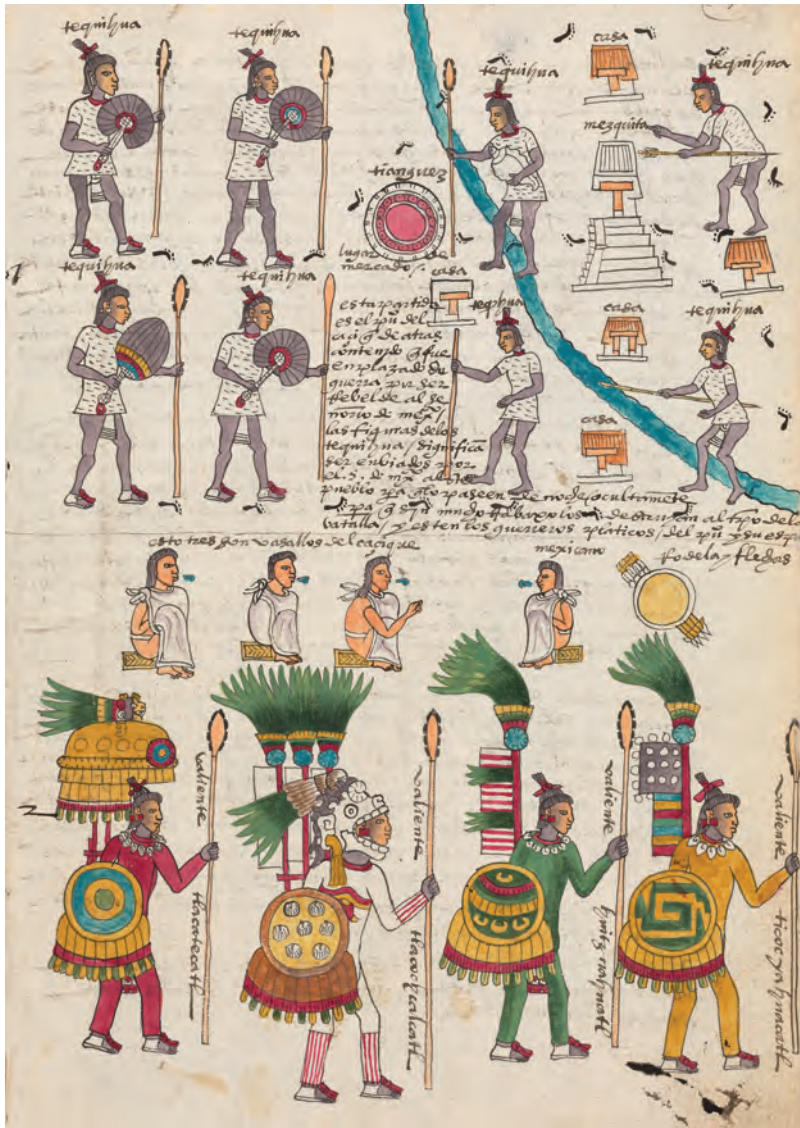 tequihua
tequihua
tequihua
casa
tequihua
mezquita
tianguez
lugar de
mercado /.
casa
tequihua
tequihua
tequihua
casa
tequihua
casa
esta partida
es el pu° del
caciq de atras
contenido q fue
enplazado de
guerra por ser
Rebelde al se
ñorio de mexº
las figuras delos
tequihua / significā
ser enbiados por
el . s . de mxº al dho
pueblo pa q lo paseen de noche ocultamete
pa q sin al tpo dela
batalla / y esten los guerreros platicos / del pu° y su
esto tres son vasallos del caçique
mexicano
Rodela y flechas
valiente
tlacatecatl
valiente
tlacochcalcatl
valiente
huitznahuatl
valiente
ticocyahuacatl